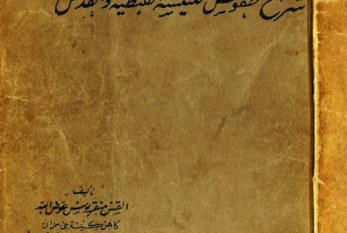 شرح طقوس الكنيسة القبطية والقداس
تأليف
القس منقريوس عوض الله
كاهن كنيسة